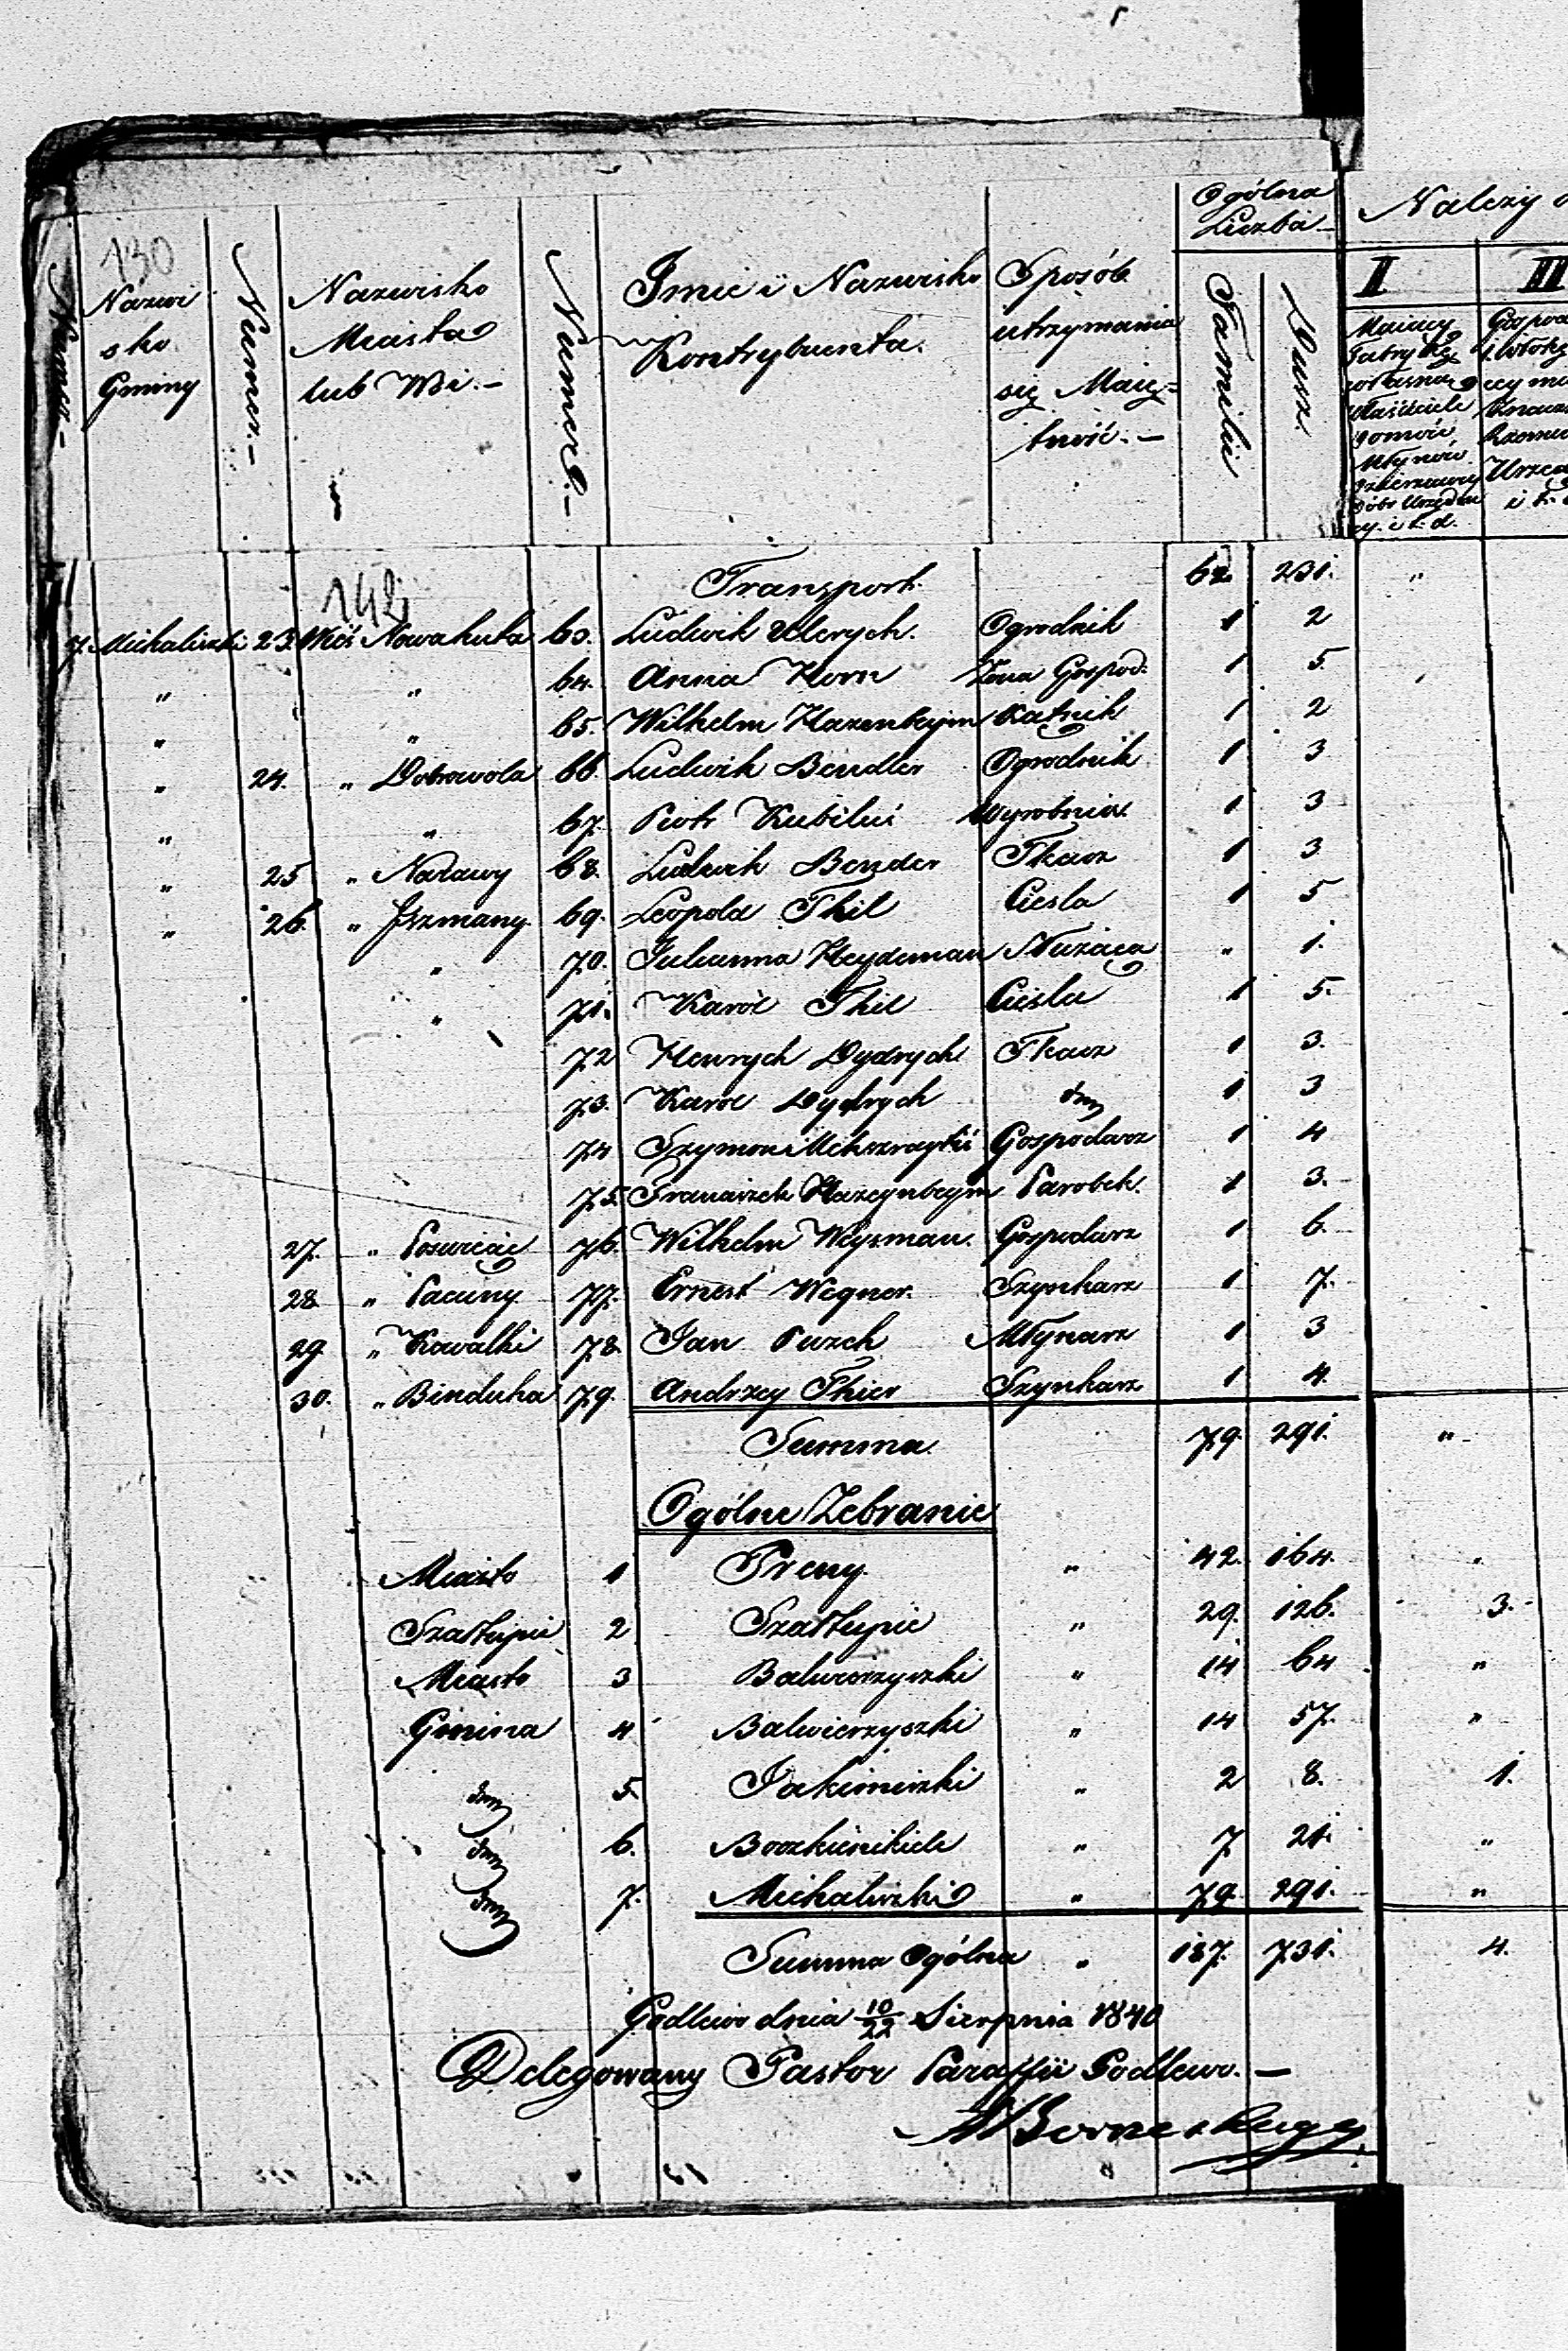 130
Ogólna Liczba Należy
Numer Nazwisko Gminy Numer Nazwisko Miasta lub Wsi Numer Imie i Nazwisko Kontrybuenta Sposób utrzymania się Maiętność Familii Dusz II III
Maiący Fabrykę własną właściciele domów, Młynów Dzierżawcy Dóbr Urzędnicy i t. d.
142
Transport 62 231 "
7. Michaliszki 23 Wieś Nowahuta 63. Ludwik Ulerych Ogrodnik 1 2
" " 64. Anna Horn Żona Gospod: 1 5.
" " 65. Wilhelm Hazenbeym Kątnik 1 2
" 24. " Dobrowola 66. Ludwik Bendler Ogrodnik 1 3
" " 67. Piotr Kubiluś Wyrobnik 1 3
" 25 " Narawy 68. Ludwik Bender Tkacz 1 3
" 26. " Iszmany 69. Leopold Thil Ciesla 1 5
" 70. Julianna Heydeman Służąca " 1.
" 71. Karol Thil Ciesla 1 5.
72 Henrych Dydrych Tkacz 1 3.
73. Karol Dydrych dtto 1 3
74 Szymon Gospodarz 1 4
75. Franciszek Hazeynbeym Parobek 1 3.
27. " 76. Wilhelm Weysman. Gospodarz 1 6.
28 " Pacuny 77. Ernest Wegner. Szynkarz 1 7.
29 " Kowalki 78. Jan Puzch Młynarz 1 3
30. " Binduha 79. Andrzey Thier Szynkarz 1 4.
Summa 79. 291. "
Ogólne Zebranie
Miasto 1 Preny " 42. 164. "
Szałtupie 2 Szałtupie " 29. 126. 3.
Miasto 3 Balwierzyszki " 14 64 "
Gmina 4 Balwierzyszki " 14 57. "
dtto 5. Jakimiszki " 2 8. 1.
dtto 6. " 7 21. "
dtto 7. Michaliszki " 79 291. "
Summa Ogólna " 187. 731. 4.
Godlewo dnia 10/22 Sierpnia 1840
Delegowany Pastor Paraffii Godlewo. —